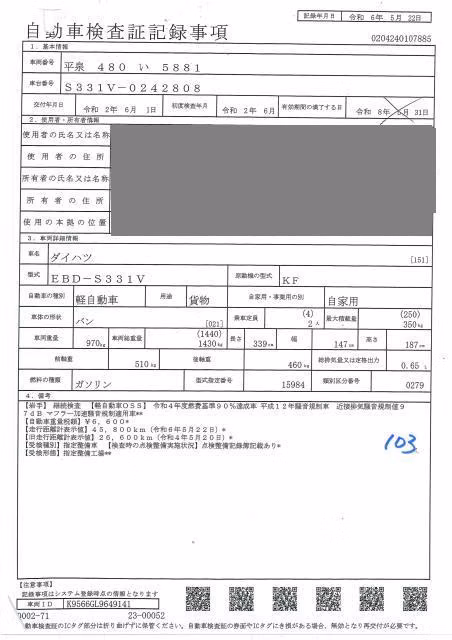 記録年月日 令和 6年 5月 22日
自動車検査証記録事項
0204240107885
1．基本情報
車両番号 平泉 480 い 5881
車台番号 S331V-0242808
交付年月日 令和 2年 6月 1日 初度検査年月 令和 2年 6月 有効期間の満了する日 令和 8年 5月 31日
2．使用者・所有者情報
使用者の氏名又は名称
使用者の住所
所有者の氏名又は名称
所有者の住所
使用の本拠の位置
3．車両詳細情報
車名 ダイハツ [151]
型式 EBD-S331V 原動機の型式 KF
自動車の種別 軽自動車 用途 貨物 自家用・事業用の別 自家用
車体の形状 バン [021] 乗車定員 (4) 2人 最大積載量 (250) 350kg
車両重量 970kg 車両総重量 (1440) 1430kg 長さ 339cm 幅 147cm 高さ 187cm
前軸重 510kg 後軸重 460kg 総排気量又は定格出力 0.65 L
燃料の種類 ガソリン 型式指定番号 15984 類別区分番号 0279
4．備考
【岩手】 継続検査 【軽自動車OSS】 令和4年度燃費基準90％達成車 平成12年騒音規制車 近接排気騒音規制値9
7dB マフラー加速騒音規制適用車**
【自動車重量税額】￥6,600*
【走行距離計表示値】45,800km（令和6年5月22日）*
【旧走行距離計表示値】26,600km（令和4年5月20日）*
【受検種別】指定整備車 【検査時の点検整備実施状況】点検整備記録簿記載あり*
【受検形態】指定整備工場**
103
【注意事項】
記録事項はシステム登録時点の情報となります
車両ID K9566GL9649141
0002-71 23-00052
自動車検査証のICタグ部分は折り曲げずに保管ください。自動車検査証の券面やICタグにき損がある場合、無効となり再交付が必要です。